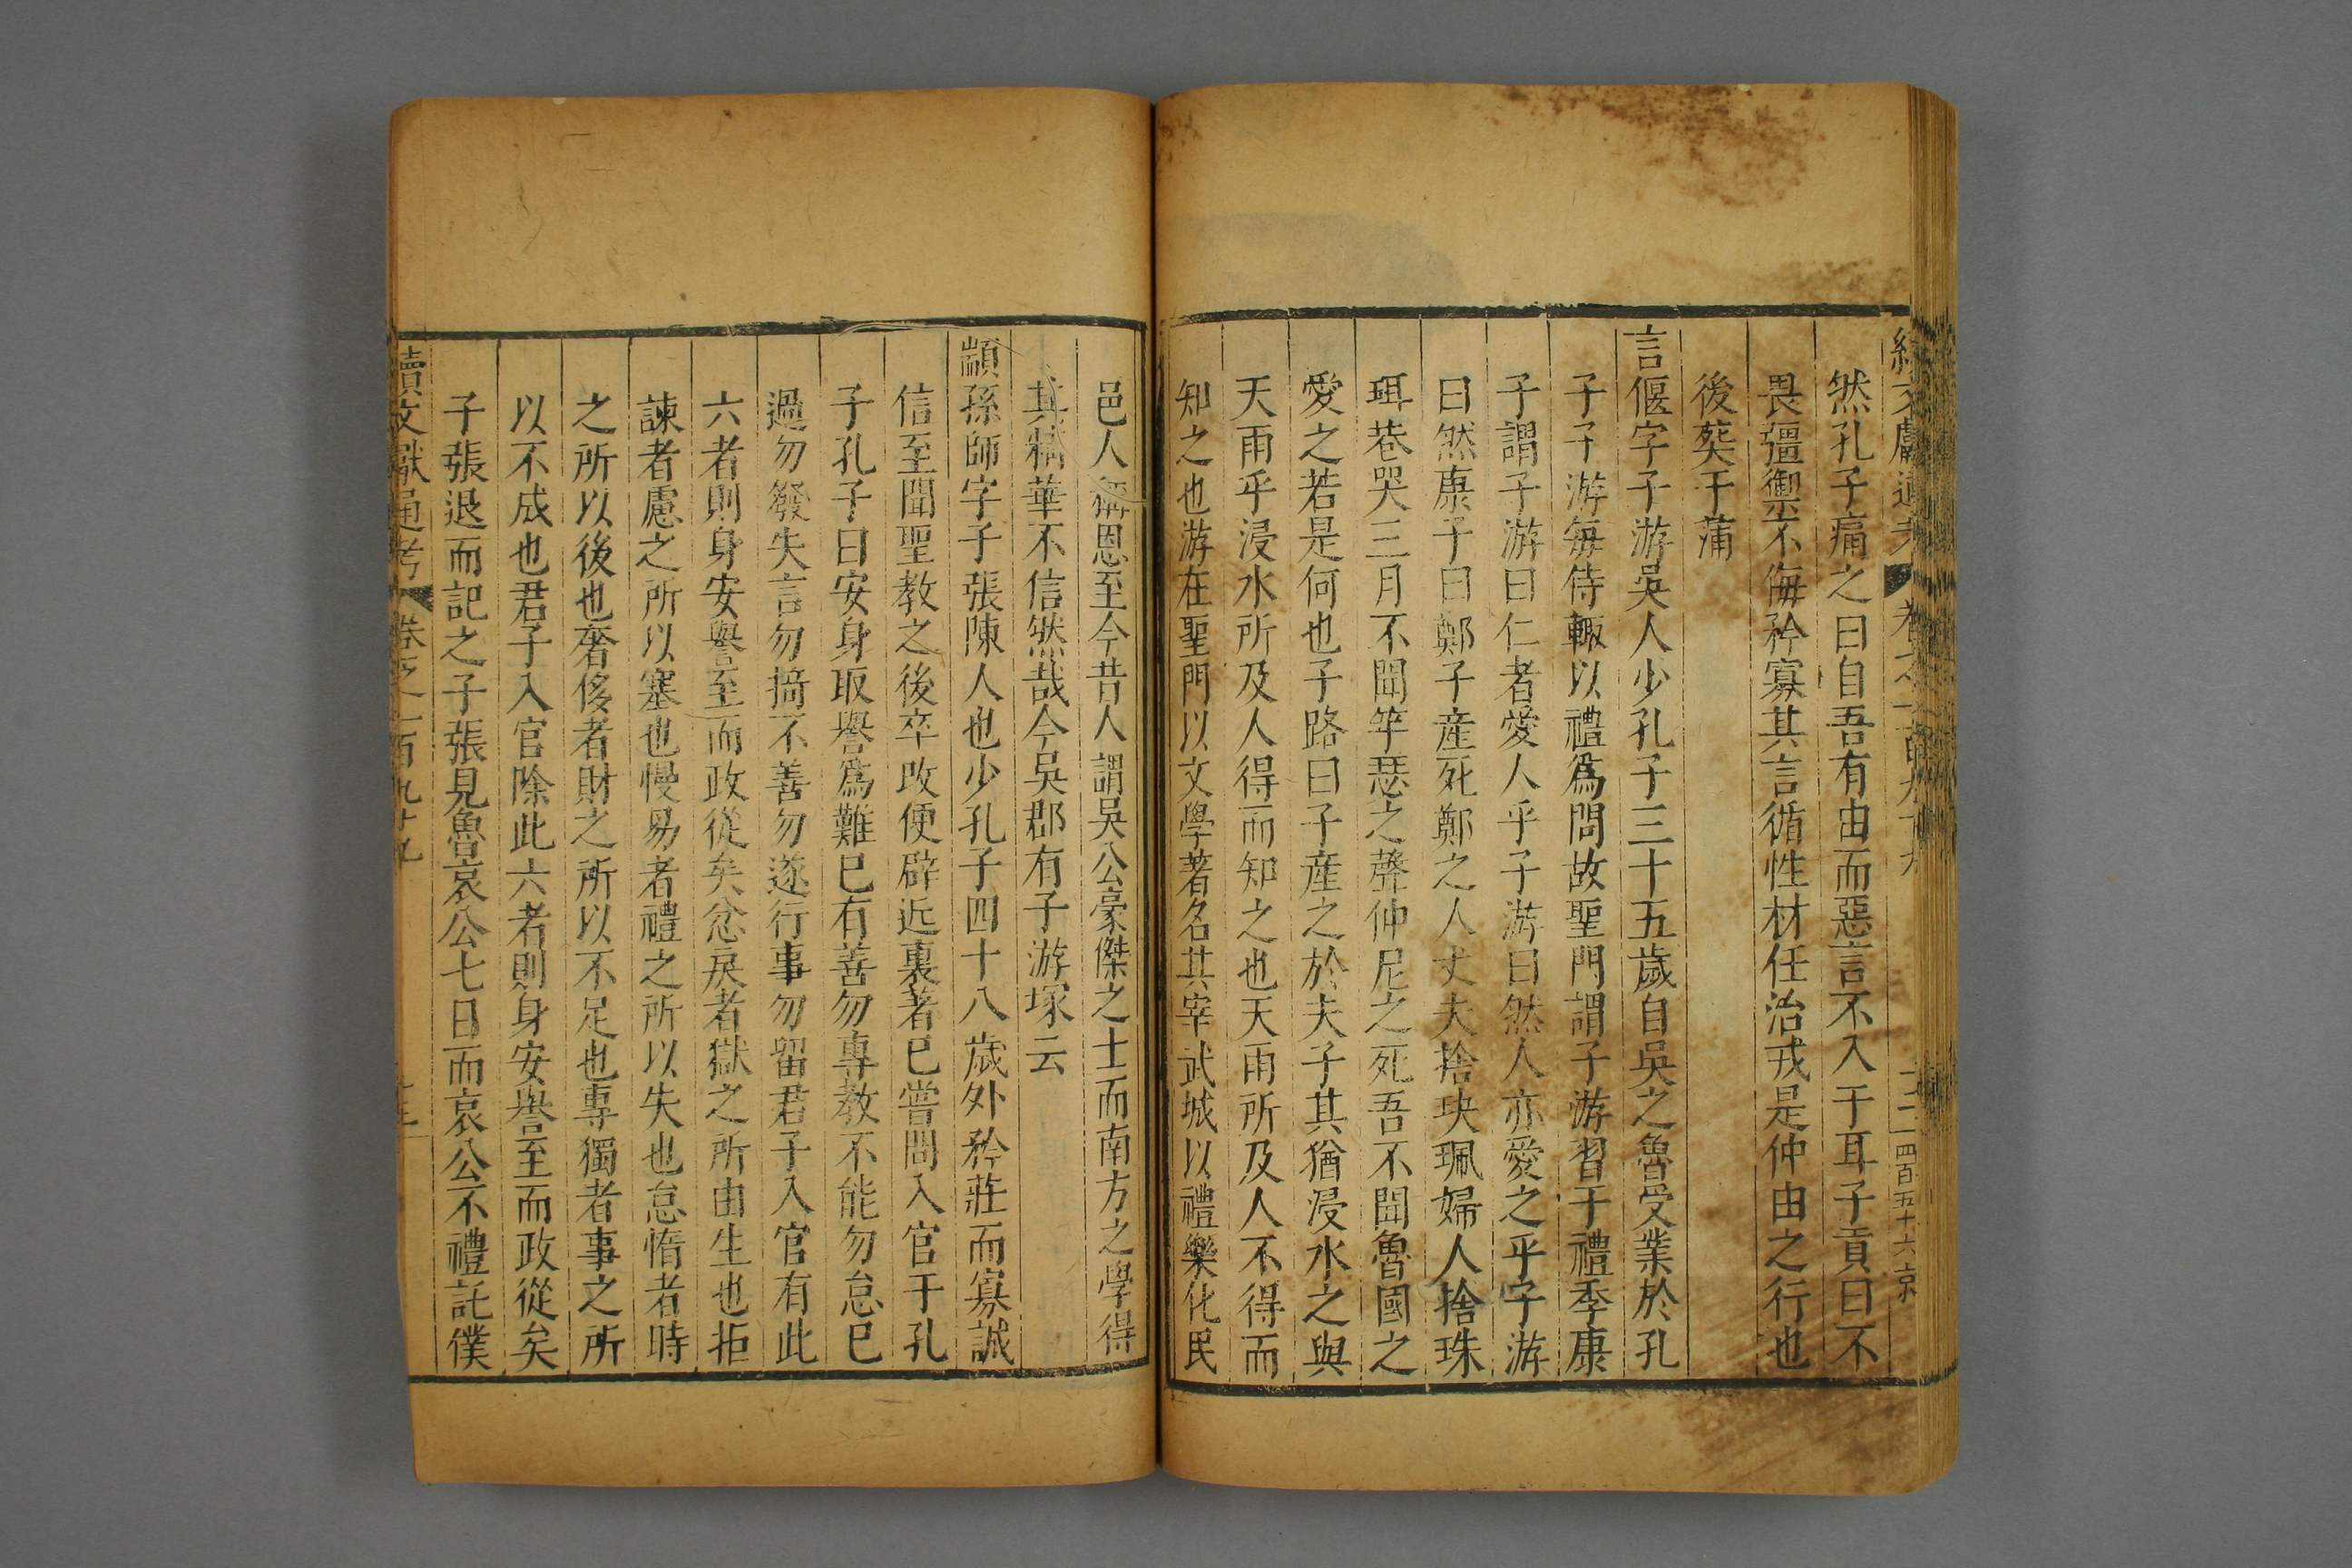 然孔子痛之曰自吾有由而惡言不入于耳子貢曰不
畏彊禦不侮矜寡其言循性材任治戎是仲由之行也
後葬于蒲
言偃字子游吳人少孔子三十五歲自吳之魯受業於孔
子子游每侍輙以禮爲問故聖門謂子游習于禮季康
子謂子游曰仁者愛人乎子游曰然人亦愛之乎子游
曰然康子曰鄭子產死鄭之人丈夫捨玦珮婦人捨珠
珥巷哭三月不聞竽瑟之聲仲尼之死吾不聞魯國之
愛之若是何也子路曰子產之於夫子其猶浸水之與
天雨乎浸水所及人得而知之也天雨所及人不得而
知之也游在聖門以文學著名其宰武城以禮樂化民
邑人稱恩至今昔人謂吳公豪傑之士而南方之學得
其精華不信然哉今吳郡有子游塚云
顓孫師字子張陳人也少孔子四十八歲外矜莊而寡誠
信至聞聖教之後卒改便辟近裏著已嘗問入官于孔
子孔子曰安身取譽爲難巳有善勿專教不能勿怠巳
過勿發失言勿掎不善勿遂行事勿留君子入官有此
六者則身安譽至而政從矣忿戾者獄之所由生也拒
諫者慮之所以塞也慢易者禮之所以失也怠惰者時
之所以後也奢侈者財之所以不足也專獨者事之所
以不成也君子入官除此六者則身安譽至而政從矣
子張退而記之子張見魯哀公七日而哀公不禮託僕
續文獻通考 卷之一百九十九